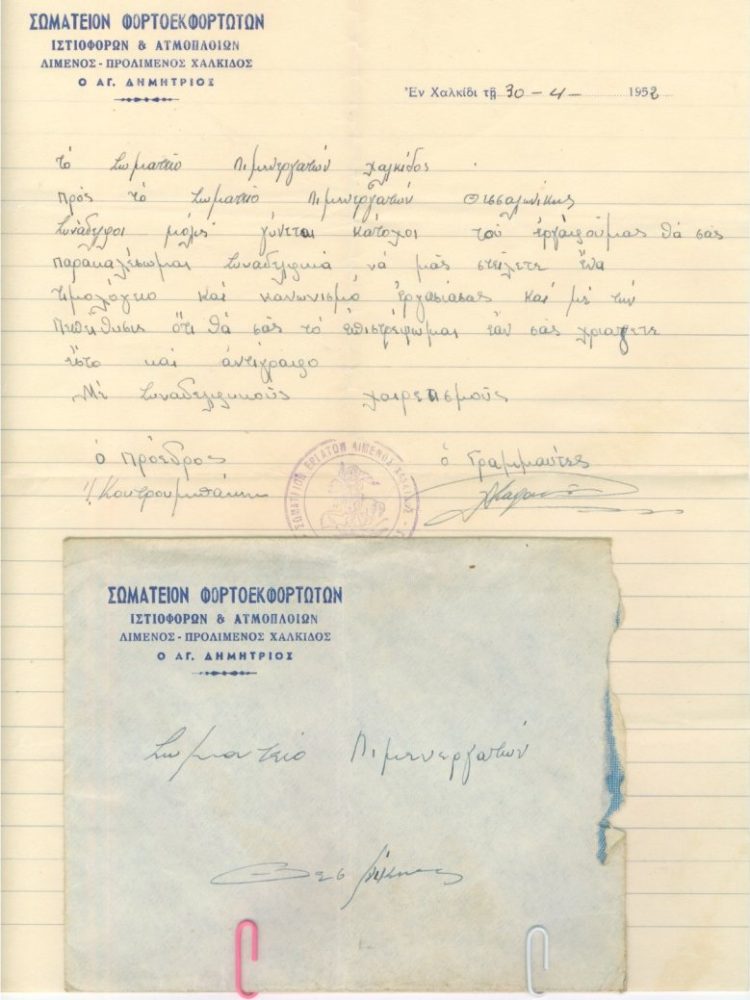 ΣΩΜΑΤΕΙΟΝ ΦΟΡΤΟΕΚΦΟΡΤΩΤΩΝ
ΙΣΤΙΟΦΟΡΩΝ & ΑΤΜΟΠΛΟΙΩΝ
ΛΙΜΕΝΟΣ - ΠΡΟΛΙΜΕΝΟΣ ΧΑΛΚΙΔΟΣ
Ο ΑΓ. ΔΗΜΗΤΡΙΟΣ
Ἐν Χαλκίδι τῇ 30 - 4 - 1952
τὸ Σωματεῖο Λιμενεργατῶν χαλκίδος
Πρὸς τὸ Σωματεῖο Λιμενεργατῶν Θεσσαλονίκης
Συνάδελφοι γίνεται κάτοχοι τοῦ θὰ σᾶς
παρακαλέσωμαι Συναδελφικὰ νὰ μᾶς στείλετε ἕνα
τιμολόγειο καὶ κανωνισμὸ ἐργασίασας καὶ μὲ τὴν
ὅτι θὰ σᾶς τὸ ἐπιστρέψωμαι ἐὰν σᾶς
ἔστο καὶ ἀντίγραφο
Μὲ Συναδελφικοὺς χαιρετισμοὺς
ὁ Πρόεδρος
ὁ Γραμματέες
ΣΩΜΑΤΕΙΟΝ ΕΡΓΑΤΩΝ ΛΙΜΕΝΟΣ
ΣΩΜΑΤΕΙΟΝ ΦΟΡΤΟΕΚΦΟΡΤΩΤΩΝ
ΙΣΤΙΟΦΟΡΩΝ & ΑΤΜΟΠΛΟΙΩΝ
ΛΙΜΕΝΟΣ - ΠΡΟΛΙΜΕΝΟΣ ΧΑΛΚΙΔΟΣ
Ο ΑΓ. ΔΗΜΗΤΡΙΟΣ
Σωματεῖο Λιμενεργατῶν